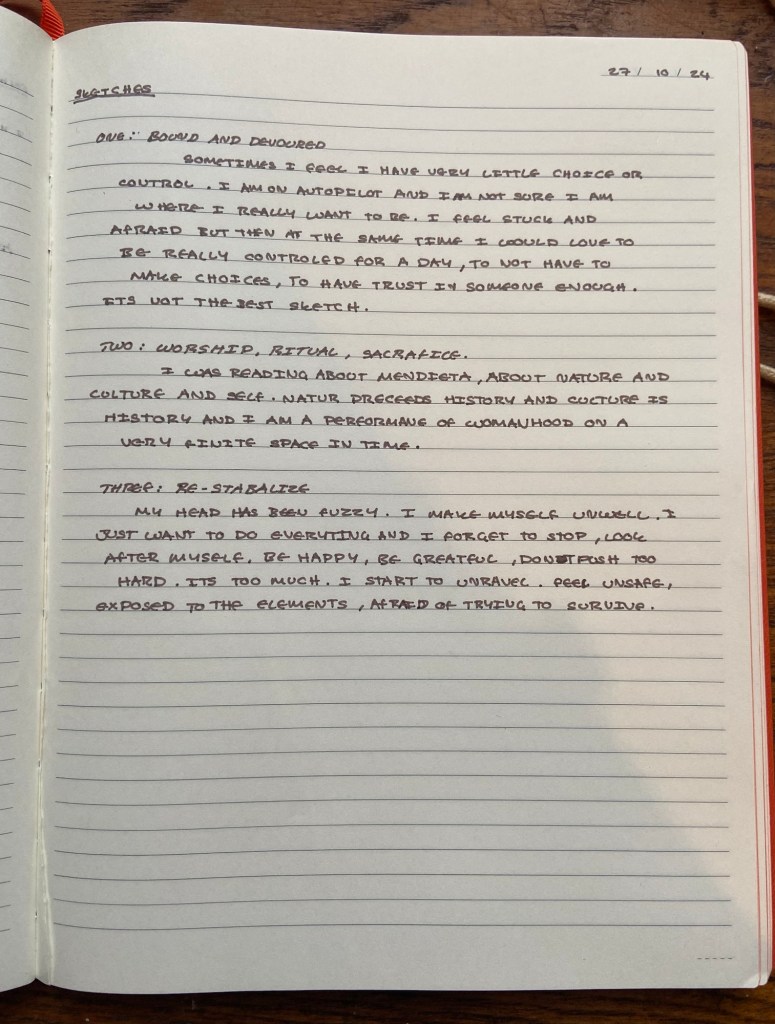 27 / 10 / 24
SKETCHES
ONE: BOUND AND DEVOURED
SOMETIMES I FEEL I HAVE VERY LITTLE CHOICE OR
CONTROL. I AM ON AUTOPILOT AND I AM NOT SURE I AM
WHERE I REALLY WANT TO BE. I FEEL STUCK AND
AFRAID BUT THEN AT THE SAME TIME I WOULD LOVE TO
BE REALLY CONTROLED FOR A DAY, TO NOT HAVE TO
MAKE CHOICES, TO HAVE TRUST IN SOMEONE ENOUGH.
ITS NOT THE BEST SKETCH.
TWO: WORSHIP, RITUAL, SACRAFICE.
I WAS READING ABOUT MENDIETA, ABOUT NATURE AND
CULTURE AND SELF. NATUR PRECEEDS HISTORY AND CULTURE IS
HISTORY AND I AM A PERFORMANE OF WOMANHOOD ON A
VERY FINITE SPACE IN TIME.
THREE: RE-STABALIZE
MY HEAD HAS BEEN FUZZY. I MAKE MYSELF UNWELL. I
JUST WANT TO DO EVERYTING AND I FORGET TO STOP, LOOK
AFTER MYSELF, BE HAPPY, BE GREATFUL, DONT PUSH TOO
HARD. ITS TOO MUCH. I START TO UNRAVEL. FEEL UNSAFE,
EXPOSED TO THE ELEMENTS, AFRAID OF TRYING TO SURVIVE.